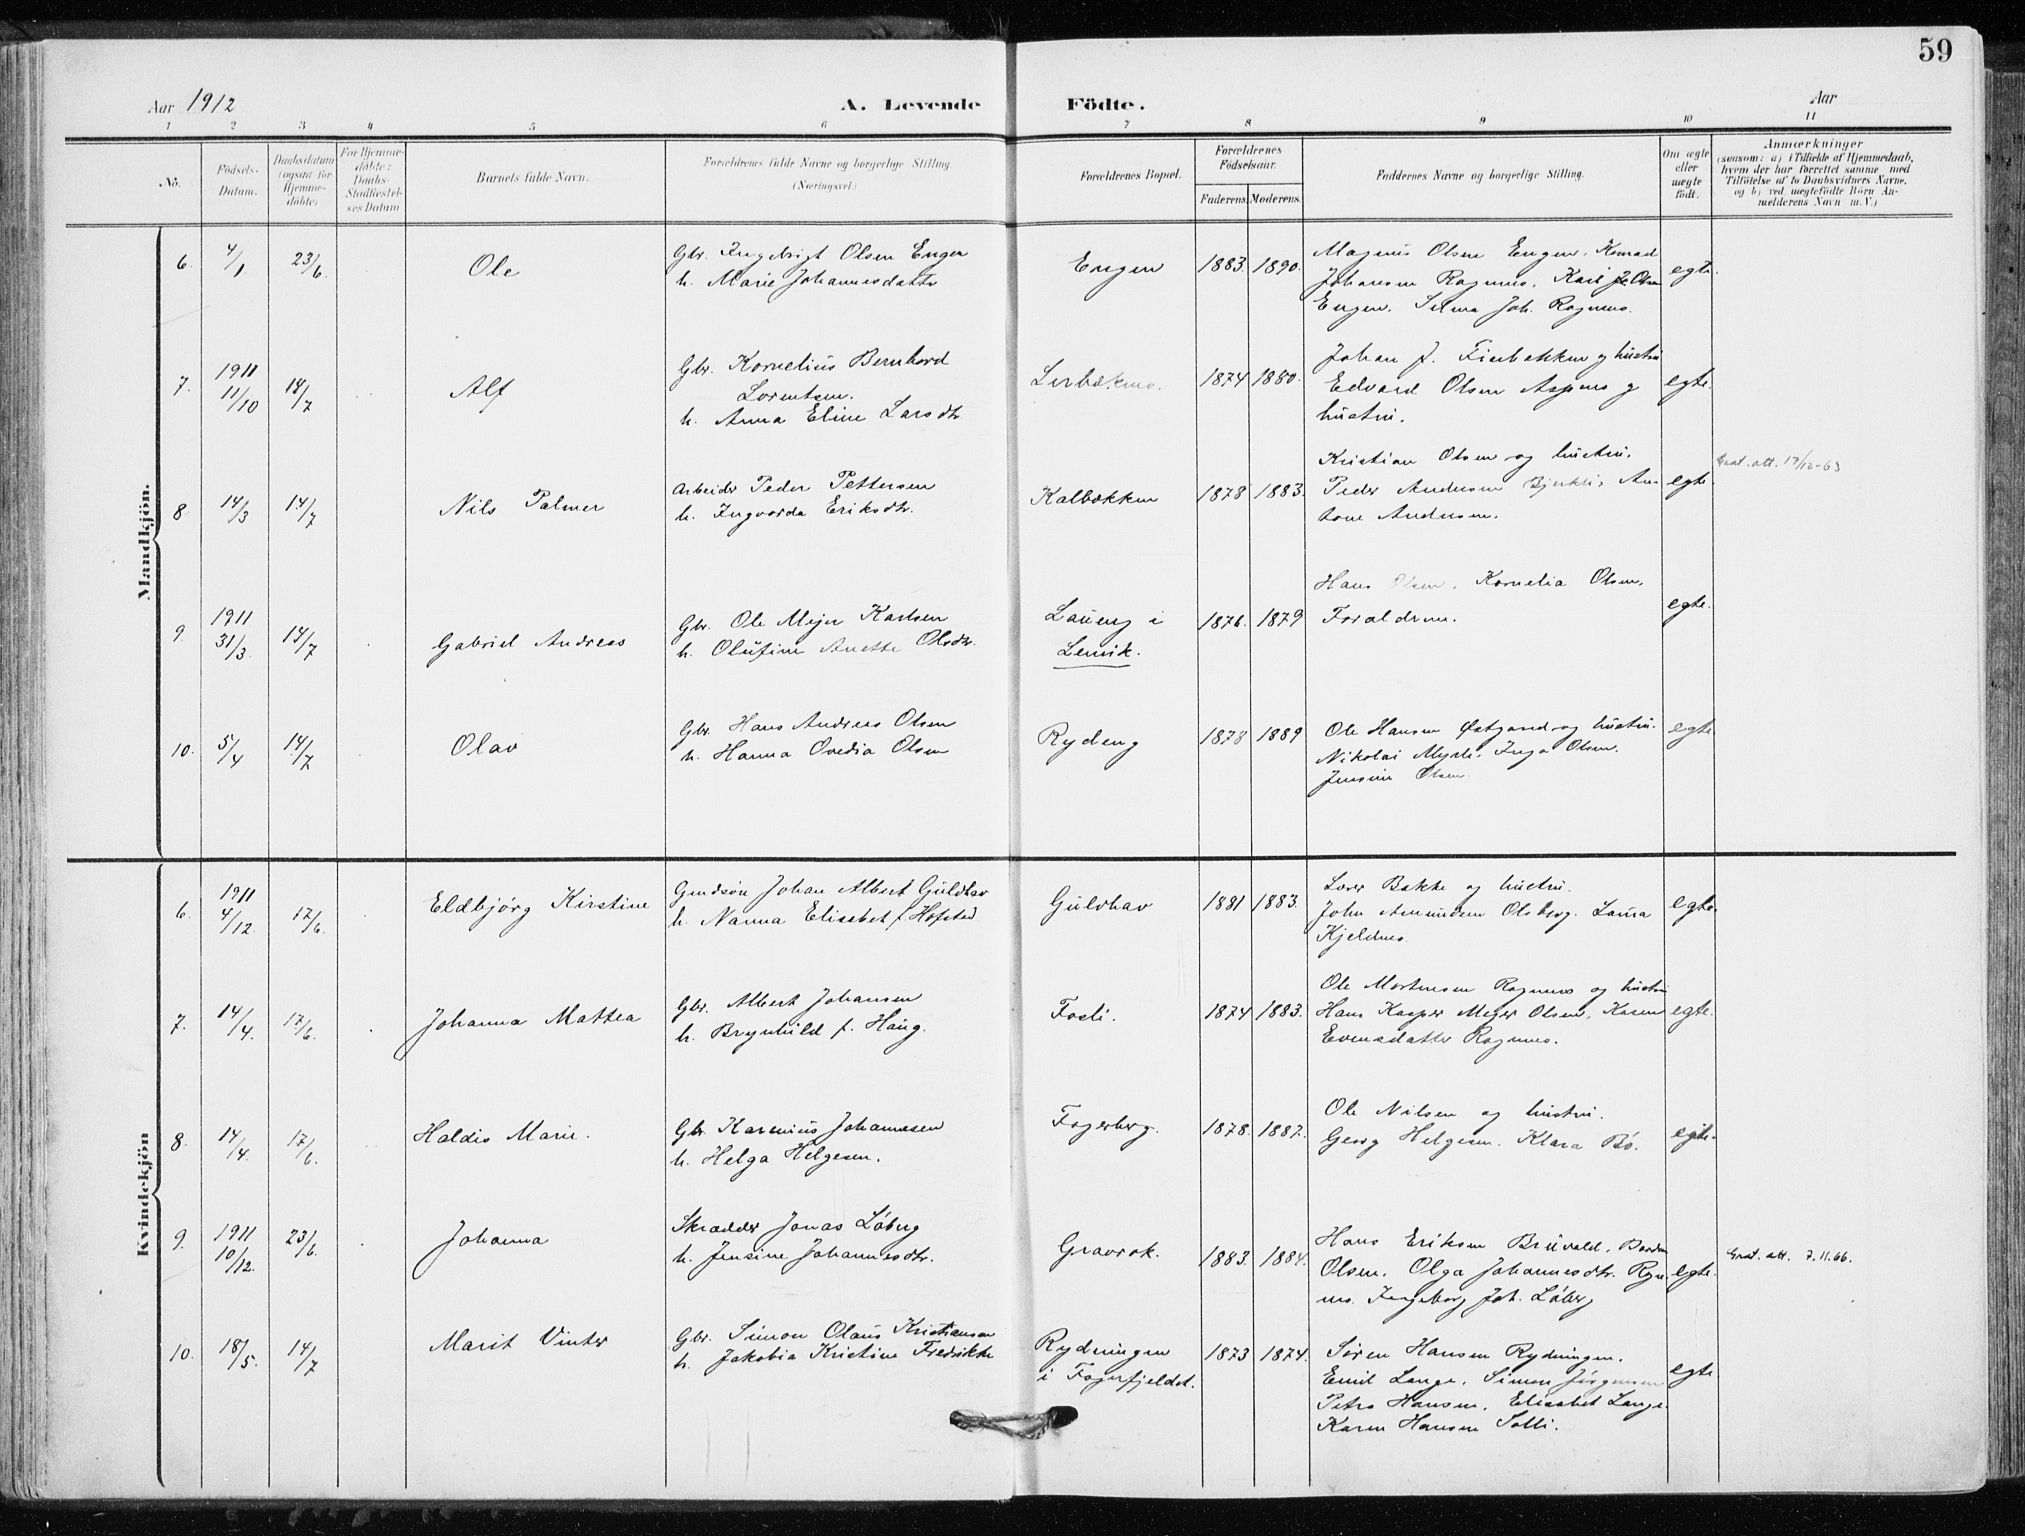 59
Aar 1912
A. Levende Födte.
Aar
1 2 3 4 5 6 7 8 9 10 11
No.
Födsels-Datum.
Daabsdatum (ogsaa for Hjemme-döbte)
For Hjemme-döbte: Daabs-Stadfæstel-ses Datum
Barnets fulde Navn.
Forældrenes fulde Navne og borgerlige Stilling. (Næringsvei.)
Forældrenes Bopæl.
Forældrenes Födselsaar.
Faderens. Moderens.
Faddernes Navne og borgerlige Stilling.
Om ægte eller uægte födt.
Anmærkninger
(saasom: a) i Tilfælde af Hjemmedaab,
hvem der har forrettet samme med
Tilföielse af to Daabsvidners Navne,
og b) ved uægtefödte Börn An-
melderens Navn m. V.)
Mandkjön.
6. 4/1 23/6. Ole
Gbr. Ingebrigt Olsen Engen
h. Marie Johannesdatter
Engen 1883. 1890.
Magnus Olsen Engen. Konrad
Johansen Rognmo. Kari Olsen
Engen. Selma Joh. Rognmo.
egte.
7. 1911 11/10 14/7 Alf
Gbr. Kornelius Bernhard
Lorentsen.
h. Anna Eline Larsdtr.
Lerbækmo. 1874 1880.
Johan J. Finbakken og hustru
Edvard Olsen Aspenes og
hustru.
egte.
8. 14/3 14/7 Nils Palmer
Arbeider Peder Pettersen
h. Ingvarda Eriksdtr.
Kalbækken 1878 1883.
Kristian Olsen og hustru.
Peder Andersen Bjerkli, An-
tone Andersen.
egte.
Grat. att. 17/12-63
9. 1911 31/3. 14/7 Gabriel Andreas
Gbr. Ole Mejer Karlsen
h. Olufine Anette Olsdtr.
Laueng i
Lenvik.
1876. 1879
Hans Olsen. Kornelia Olsen.
Forældrene.
egte.
10. 5/4 14/7 Olav
Gbr. Hans Andreas Olsen
h. Hanna Ovedia Olsen
Rydeng 1878 1889
Ole Hansen Østgaard og hustru.
Nikolai Myrli. Inga Olsen.
Jensine Olsen.
egte
Kvindekjön
6. 1911 4/12. 17/6. Eldbjørg Kirstine
Grndsön Johan Albert Guldhav
h. Nanna Elisabet f. Hofsted
Guldhav 1881 1883.
Lærer Bakke og hustru.
John Amundsen Olsborg. Laura
Kjeldmo.
egte.
7. 14/4. 17/6. Johanna Mattea
Gbr. Albert Johansen
h. Brynhild f. Haug.
Fosli. 1874 1883.
Ole Mortensen Rognmo og hustru
Hans Kasper Mejer Olsen. Karen
Evensdatter Rognmo.
egte.
8. 14/4. 17/6. Haldis Marie.
Gbr Karenius Johannesen
h. Helga Helgesen.
Fagerberg. 1878. 1887.
Ole Nilsen og hustru.
Georg Helgesen. Klara Bö.
egte.
9. 1911 10/12. 23/6. Johanna
Skrædder Jonas Løberg
h. Jensine Johannesdtr.
Gravrok. 1883. 1884.
Hans Eriksen Bruvold.
Olsen. Olga Johannesdtr. Rogn-
mo. Ingeborg Joh. Løberg
egte.
Grat. att. 7.11.66.
10. 18/5. 14/7 Marit Vinter
Gbr. Simon Olaus Kristiansen
h. Jakobia Kristine Fredrikke
Rydningen
i Fagerfjeldet.
1873 1874.
Søren Hansen Rydningen.
Emil Lange. Simon Jørgensen
Petra Hansen. Elisabet Lange.
Karen Hansen Solli.
egte